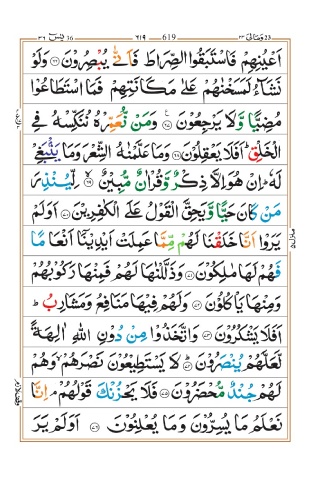 يٰسٓ 36 ٣٦ 619 ٦١٩ وَمَالِيَ 23 ٢٣
اَعۡيُنِهِمۡ فَاسۡتَبَقُوا الصِّرَاطَ فَاَنّٰى يُبۡصِرُوۡنَ ٦٦ وَلَوۡ
نَشَآءُ لَمَسَخۡنٰهُمۡ عَلٰى مَكَانَتِهِمۡ فَمَا اسۡتَطَاعُوۡا
مُضِيًّا وَّلَا يَرۡجِعُوۡنَ ٦٧ وَمَنۡ نُّعَمِّرۡهُ نُنَكِّسۡهُ فِى
الۡخَلۡقِ ؕ اَفَلَا يَعۡقِلُوۡنَ ٦٨ وَمَا عَلَّمۡنٰهُ الشِّعۡرَ وَمَا يَنۡۢبَغِىۡ
لَهٗ ؕ اِنۡ هُوَ اِلَّا ذِكۡرٌ وَّقُرۡاٰنٌ مُّبِيۡنٌ ٦٩ لِّيُنۡذِرَ
مَنۡ كَانَ حَيًّا وَّيَحِقَّ الۡقَوۡلُ عَلَى الۡكٰفِرِيۡنَ ٧٠ اَوَلَمۡ
يَرَوۡا اَنَّا خَلَقۡنَا لَهُمۡ مِّمَّا عَمِلَتۡ اَيۡدِيۡنَاۤ اَنۡعَامًا
فَهُمۡ لَهَا مٰلِكُوۡنَ ٧١ وَذَلَّلۡنٰهَا لَهُمۡ فَمِنۡهَا رَكُوۡبُهُمۡ
وَمِنۡهَا يَاۡكُلُوۡنَ ٧٢ وَلَهُمۡ فِيۡهَا مَنَافِعُ وَمَشَارِبُ ؕ
اَفَلَا يَشۡكُرُوۡنَ ٧٣ وَاتَّخَذُوۡا مِنۡ دُوۡنِ اللّٰهِ اٰلِهَةً
لَّعَلَّهُمۡ يُنۡصَرُوۡنَ ٧٤ ؕ لَا يَسۡتَطِيۡعُوۡنَ نَصۡرَهُمۡۙ وَهُمۡ
لَهُمۡ جُنۡدٌ مُّحۡضَرُوۡنَ ٧٥ فَلَا يَحۡزُنۡكَ قَوۡلُهُمۡ ۘ اِنَّا
نَعۡلَمُ مَا يُسِرُّوۡنَ وَمَا يُعۡلِنُوۡنَ ٧٦ اَوَلَمۡ يَرَ